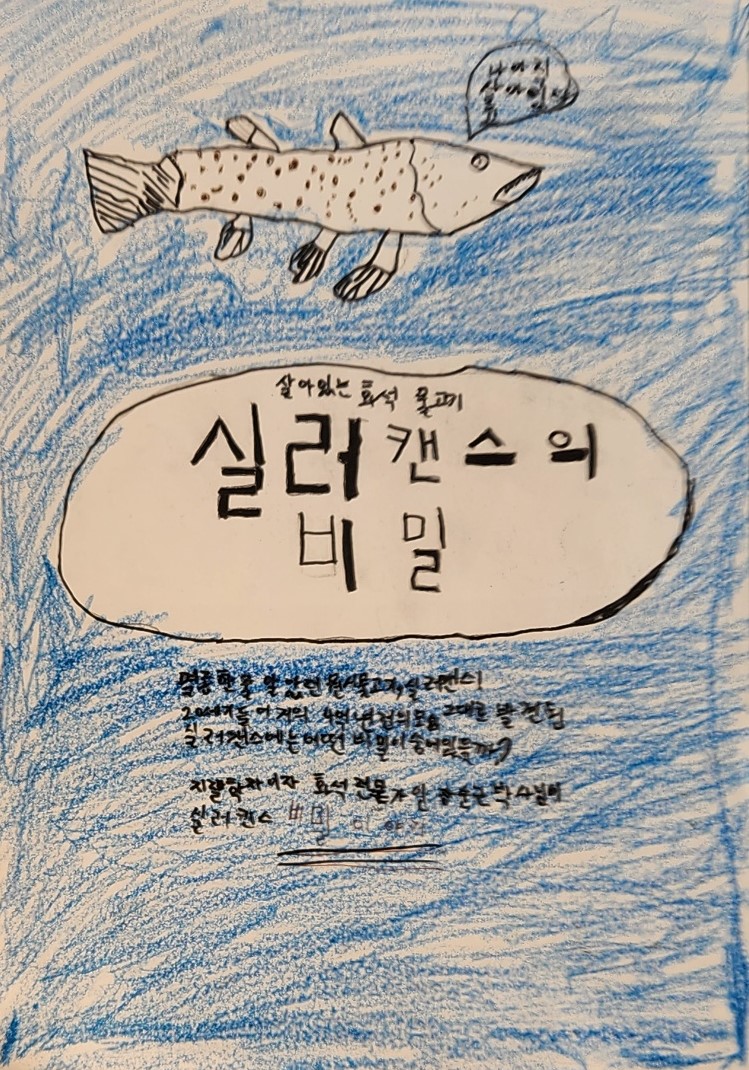 나 아직
살아있다
살아있는 화석 물고기
실러캔스의
비밀
멸종한 줄 알았던 물고기, 실러캔스!
20세기들어 거의 4억 년 전의 모습 그대로 발견된
실러캔스에는 어떤 비밀이 숨어 있을까?
지질학자이자 화석 전문가인 박사님의
실러캔스 비밀 이야기